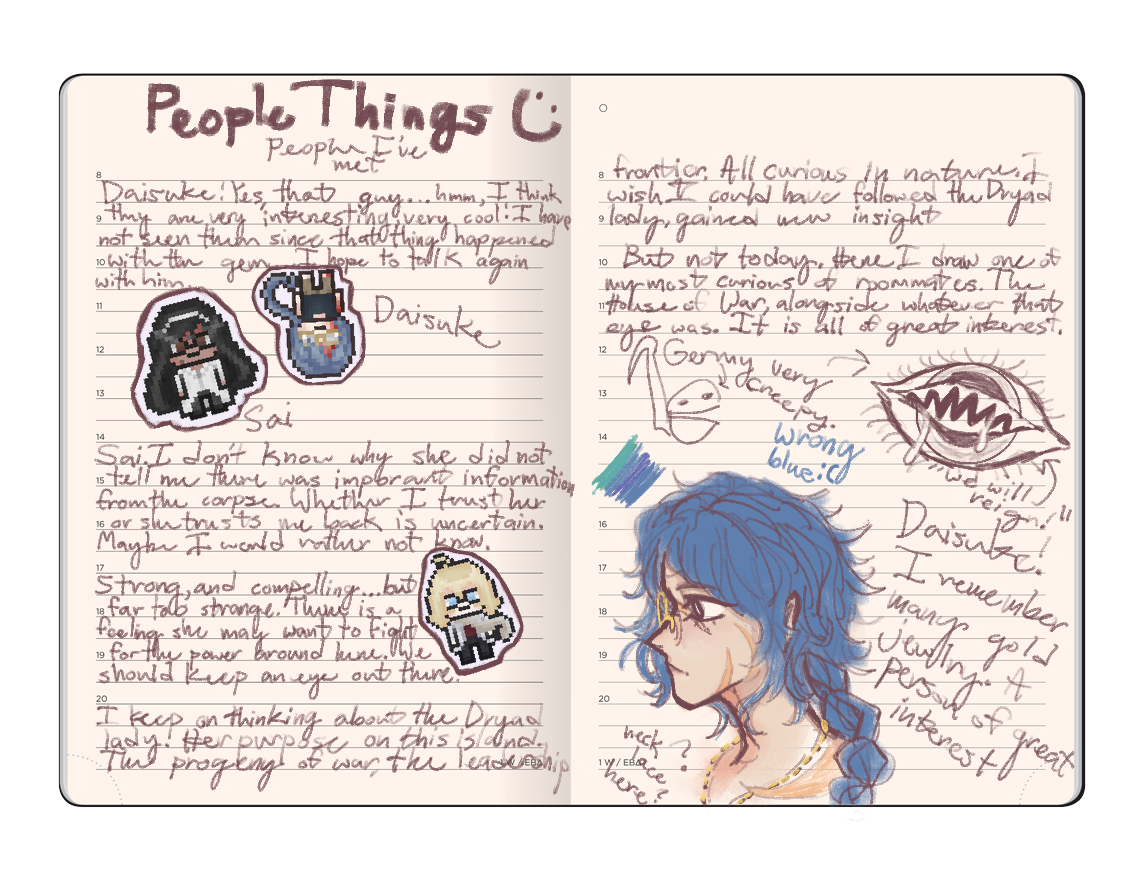 People Things
People I've
met
8
Daisuke! Yes, that guy... hmm, I think
they are very interesting, very cool! I have
9
not seen them since that thing happened
10
with the gem. I hope to talk again
with him.
11
Daisuke
12
13
Sai
14
Sai, I don't know why she did not
tell me there was important information
15
from the corpse. Whether I trust her
16
or she trusts me back is uncertain.
Maybe I would rather not know.
17
Strong, and compelling... but
far too strange. There is a
18
feeling she may want to fight
19
for the power around here. We
should keep an eye out there.
20
I keep on thinking about the Dryad
lady! Her purpose on this island.
The progeny of war, the leadership
1 W / EBA
8
frontier. All curious in nature. I
wish I could have followed the Dryad
9
lady, gained new insight
10
But not today. Here I draw one of
my most curious of roommates. The
11
House of War, alongside whatever that
eye was. It is all of great interest.
12
Germy very
creepy.
13
14
wrong
blue :(
"we will
reign!"
16
17
18
19
20
Daisuke!
I remember
many gold
jewelry. A
person of
interest
great
neck
lace
here?
?
1 W / EBA